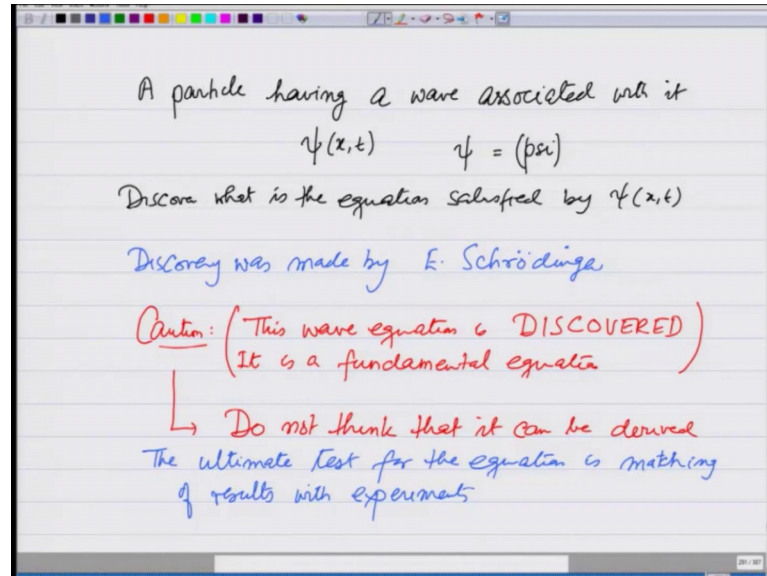 A particle having a wave associated with it
ψ(x,t) ψ = (psi)
Discover what is the equation satisfied by ψ(x,t)
Discovery was made by E. Schrödinger
Caution: (This wave equation is DISCOVERED
It is a fundamental equation)
↳ Do not think that it can be derived
The ultimate test for the equation is matching
of results with experiments
291 / 387